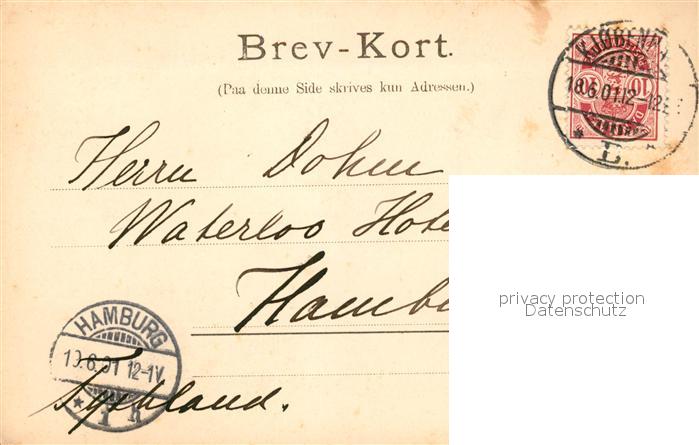 Brev-Kort.
(Paa denne Side skrives kun Adressen.)
KJØBENH
18.6.01.12-12E
L.
10
Herrn Dohm
Waterloo Hote
Hambu
privacy protection
Datenschutz
HAMBURG
19.6.01 12-1V
* 1 h
Tyskland.